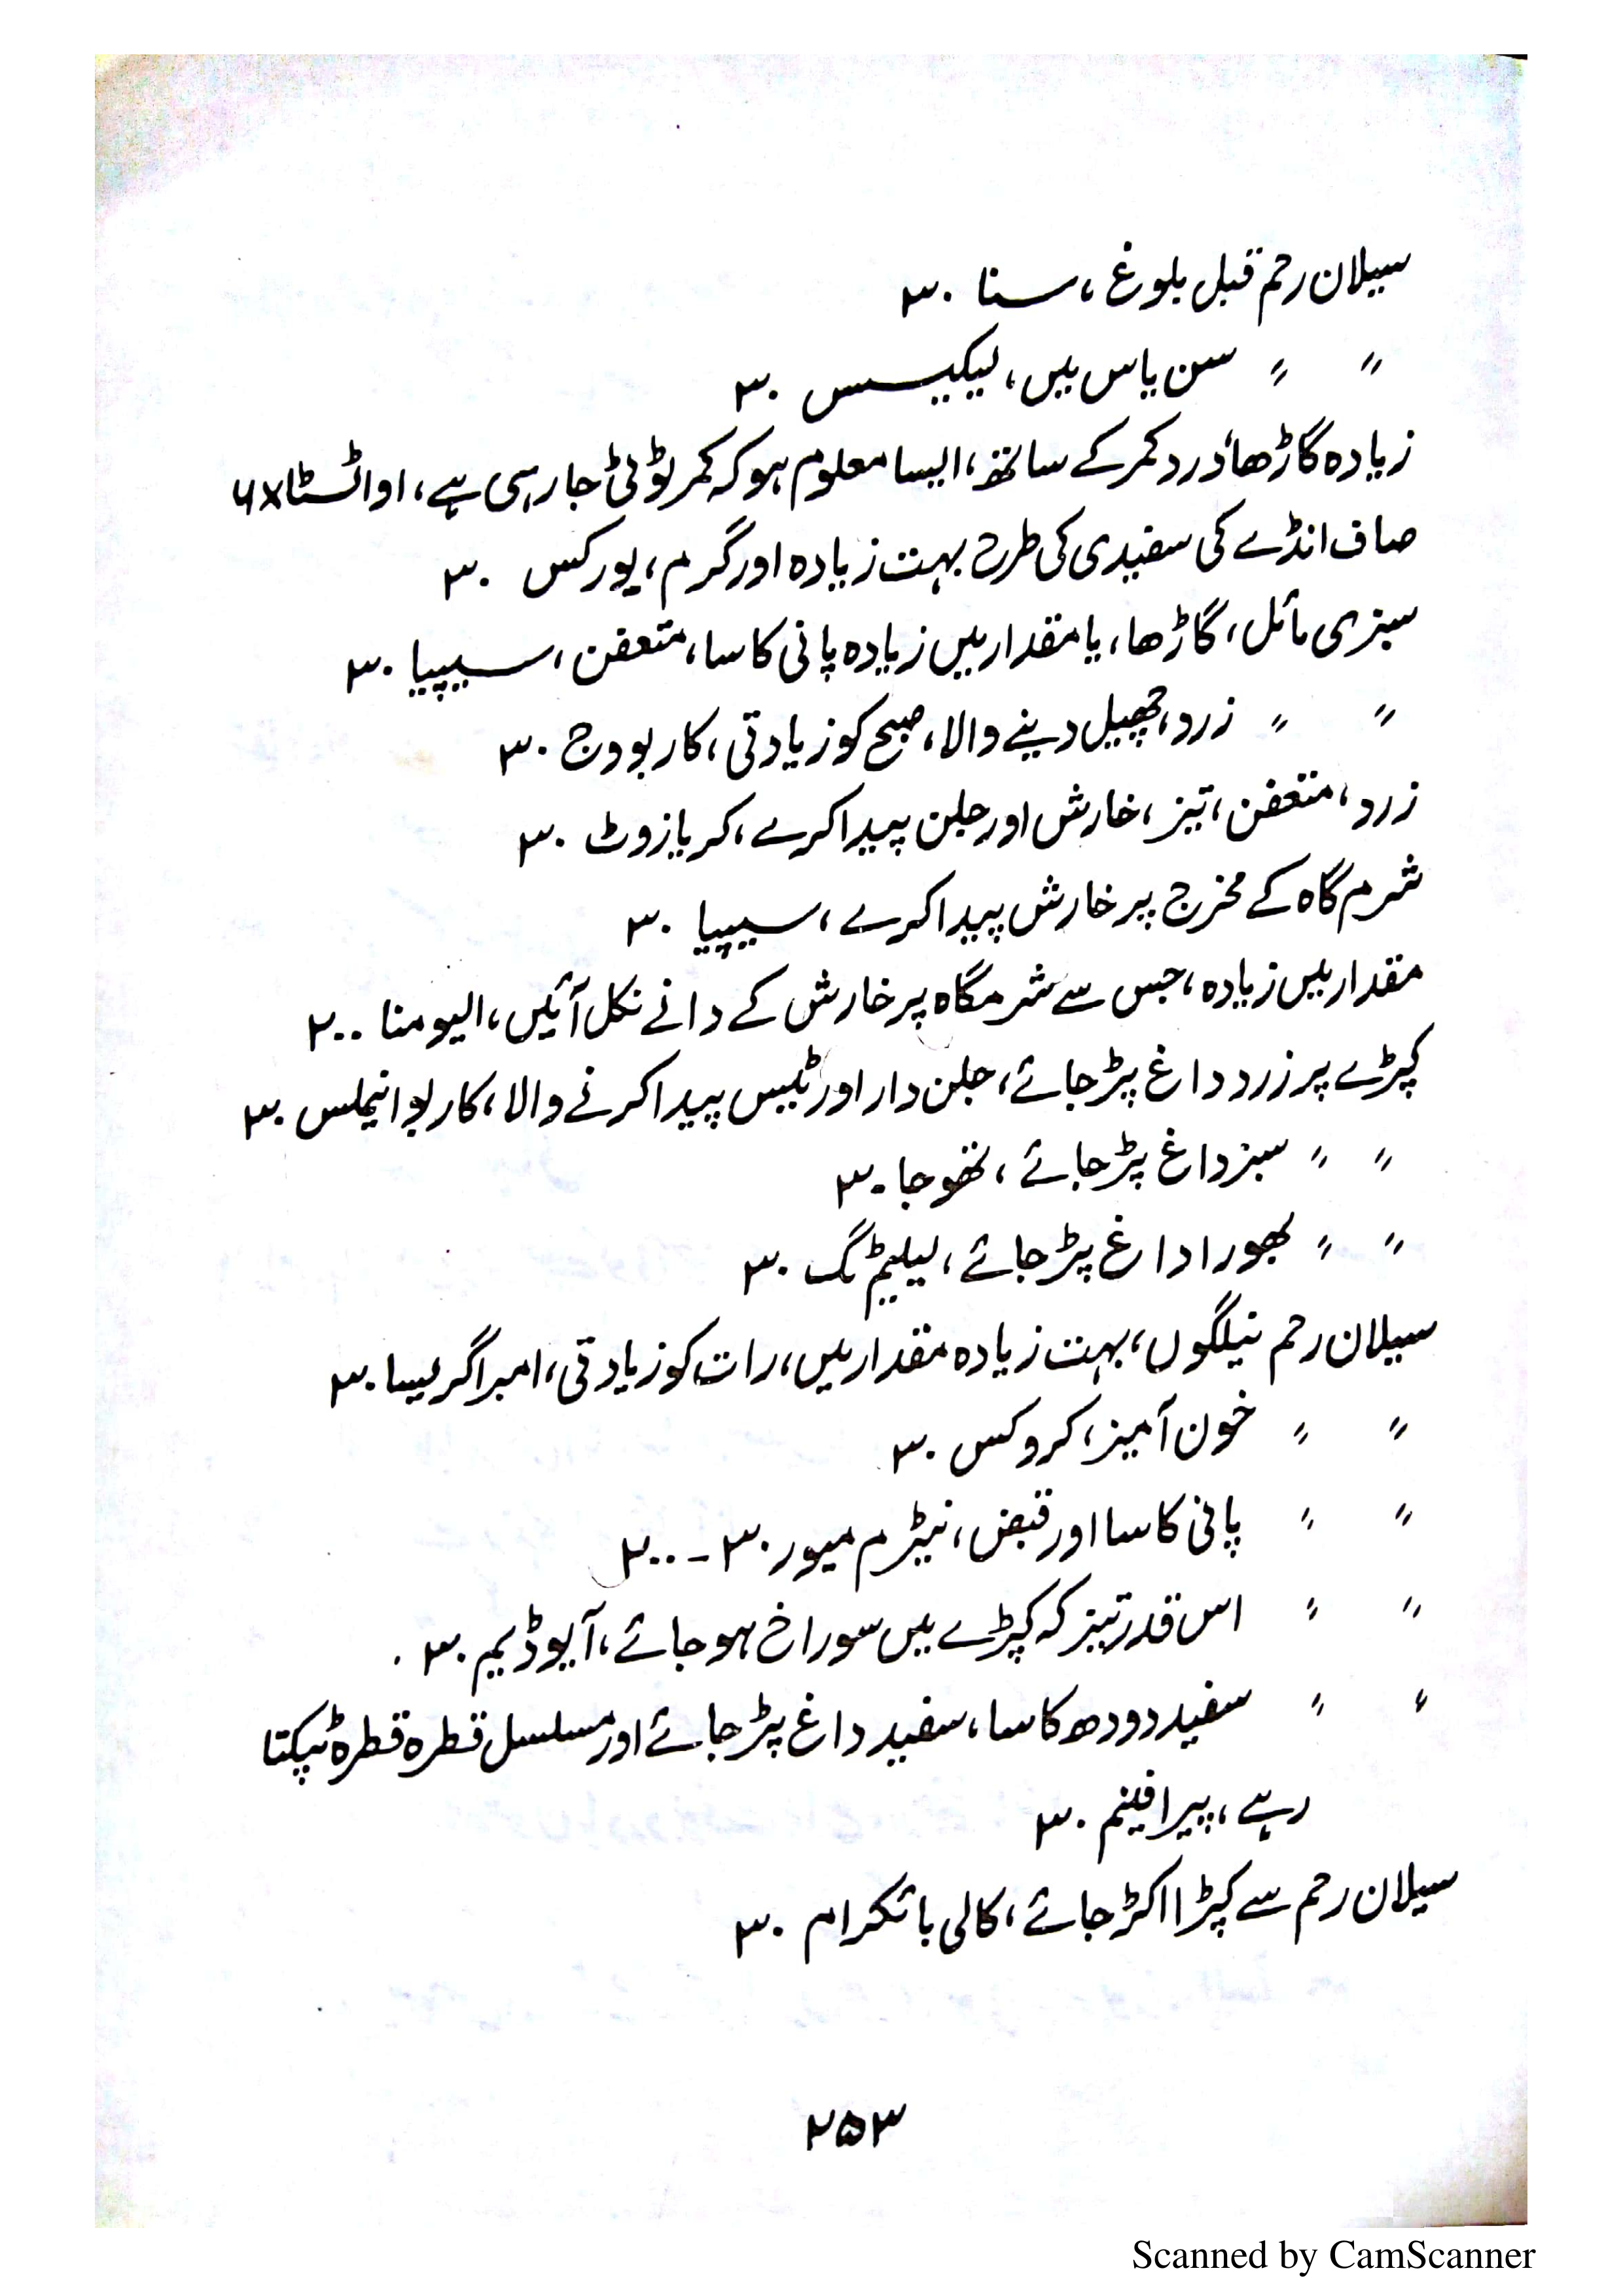 سیلان رحم قبل بلوغ، سنا ۳۰
〃 〃 سن یاس میں، لیکیسس ۳۰
زیادہ گاڑھا، درد کمر کے ساتھ، ایسا معلوم ہو کہ کمر ٹوٹی جا رہی ہے، اواٹسٹا ۶x
صاف انڈے کی سفیدی کی طرح بہت زیادہ اور گرم، بورکس ۳۰
سبزی مائل، گاڑھا، یا مقدار میں زیادہ پانی کا سا، متعفن، سیپیا ۳۰
〃 〃 زرد، چھیل دینے والا، صبح کو زیادتی، کاربووج ۳۰
زرد، متعفن، تیز، خارش اور جلن پیدا کرے، کریازوٹ ۳۰
شرم گاہ کے مخرج پر خارش پیدا کرے، سیپیا ۳۰
مقدار میں زیادہ، جس سے شرمگاہ پر خارش کے دانے نکل آئیں، الیومنا ۲۰۰
کپڑے پر زرد داغ پڑ جائے، جلن دار اور ٹیس پیدا کرنے والا، کاربوانیملس ۳۰
〃 〃 سبز داغ پڑ جائے، تھوجا ۳۰
〃 〃 بھورا داغ پڑ جائے، لیلیم ٹگ ۳۰
سیلان رحم نیلگوں، بہت زیادہ مقدار میں، رات کو زیادتی، امبراگریسا ۳۰
〃 〃 خون آمیز، کروکس ۳۰
〃 〃 پانی کا سا اور قبض، نیٹرم میور ۳۰ - ۲۰۰
〃 〃 اس قدر تیز کہ کپڑے میں سوراخ ہو جائے، آیوڈیم ۳۰
〃 〃 سفید دودھ کا سا، سفید داغ پڑ جائے اور مسلسل قطرہ قطرہ ٹپکتا
رہے، پیرافینم ۳۰
سیلان رحم سے کپڑا اکڑ جائے، کالی بائکرام ۳۰
۲۵۳
Scanned by CamScanner